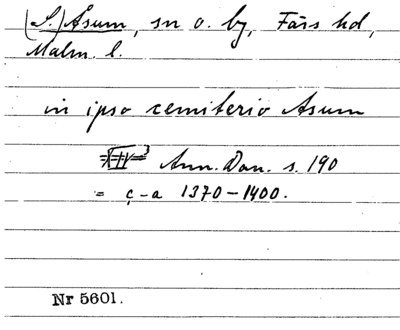 (S.) Åsum, sn o. by, Färs hd,
Malm. l.
in ipso cemiterio Asum
Ann. Dan. s. 190
= c-a 1370-1400.
Nr 5601.